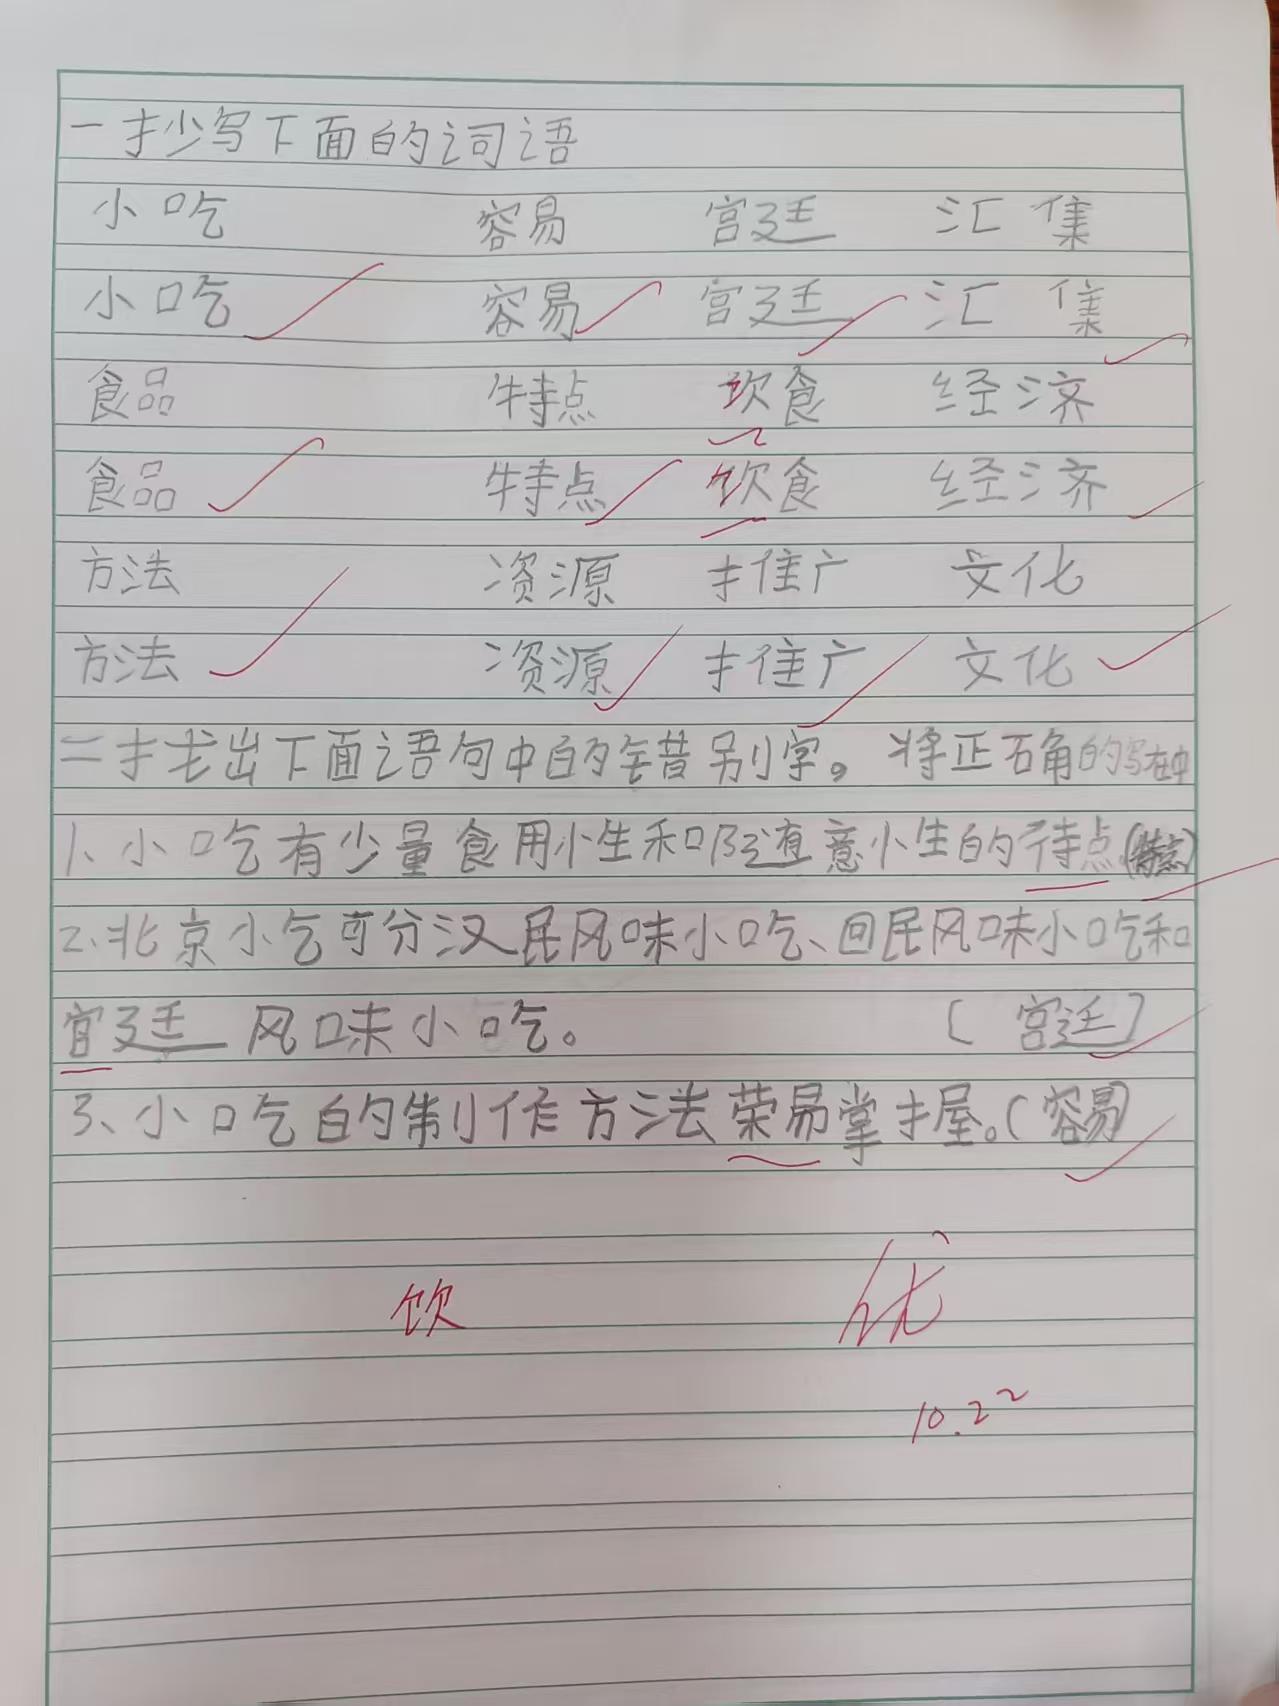 一抄写下面的词语
小吃 容易 宫廷 汇集
小吃 容易 宫廷 汇集
食品 特点 饮食 经济
食品 特点 饮食 经济
方法 资源 推广 文化
方法 资源 推广 文化
二找出下面语句中的错别字。将正确的写在中
1、小吃有少量食用性和随意性的待点(特点)
2、北京小乞可分汉民风味小吃、回民风味小吃和
官廷风味小吃。 (宫廷)
3、小吃的制作方法荣易掌握。(容易)
饮 优
10.22